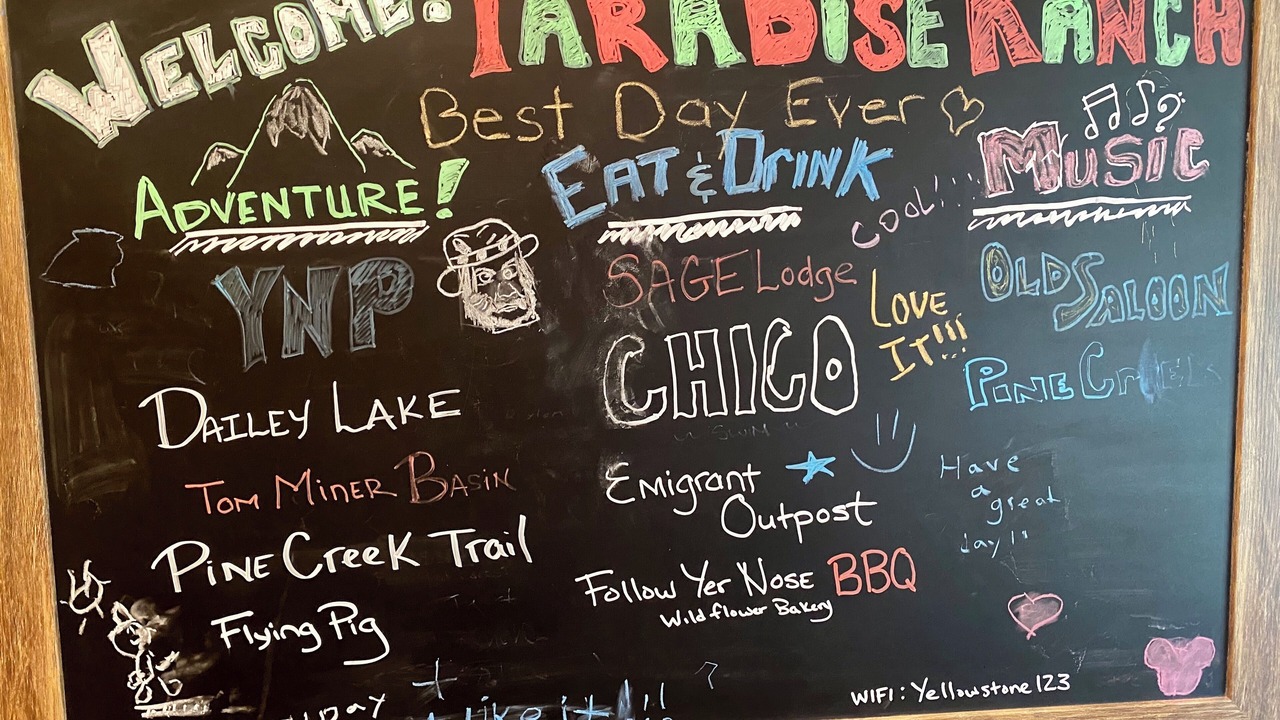 WELCOME!
PARADISE RANCH
Best Day Ever
ADVENTURE!
YNP
DAILEY LAKE
TOM MINER BASIN
PINE CREEK TRAIL
Flying Pig
EAT & DRINK
COOL!!!
SAGE Lodge
LOVE
IT!!!
CHICO
"SWIM"
Emigrant
Outpost
Follow Yer Nose BBQ
Wildflower Bakery
MUSIC
OLD SALOON
PINE CREEK
Have
a
great
day!!
I like it!!
WIFI: Yellowstone123